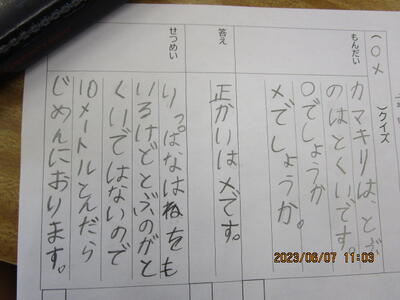 (〇✕)クイズ
もんだい
カマキリは、とぶ
のはとくいです。
〇でしょうか
✕でしょうか。
答え
正かいは✕です。
せつめい
りっぱなはねをも
いるけどとぶのがと
くいではないので
10メートルとんだら
じめんにおります。
2023/06/07 11:03